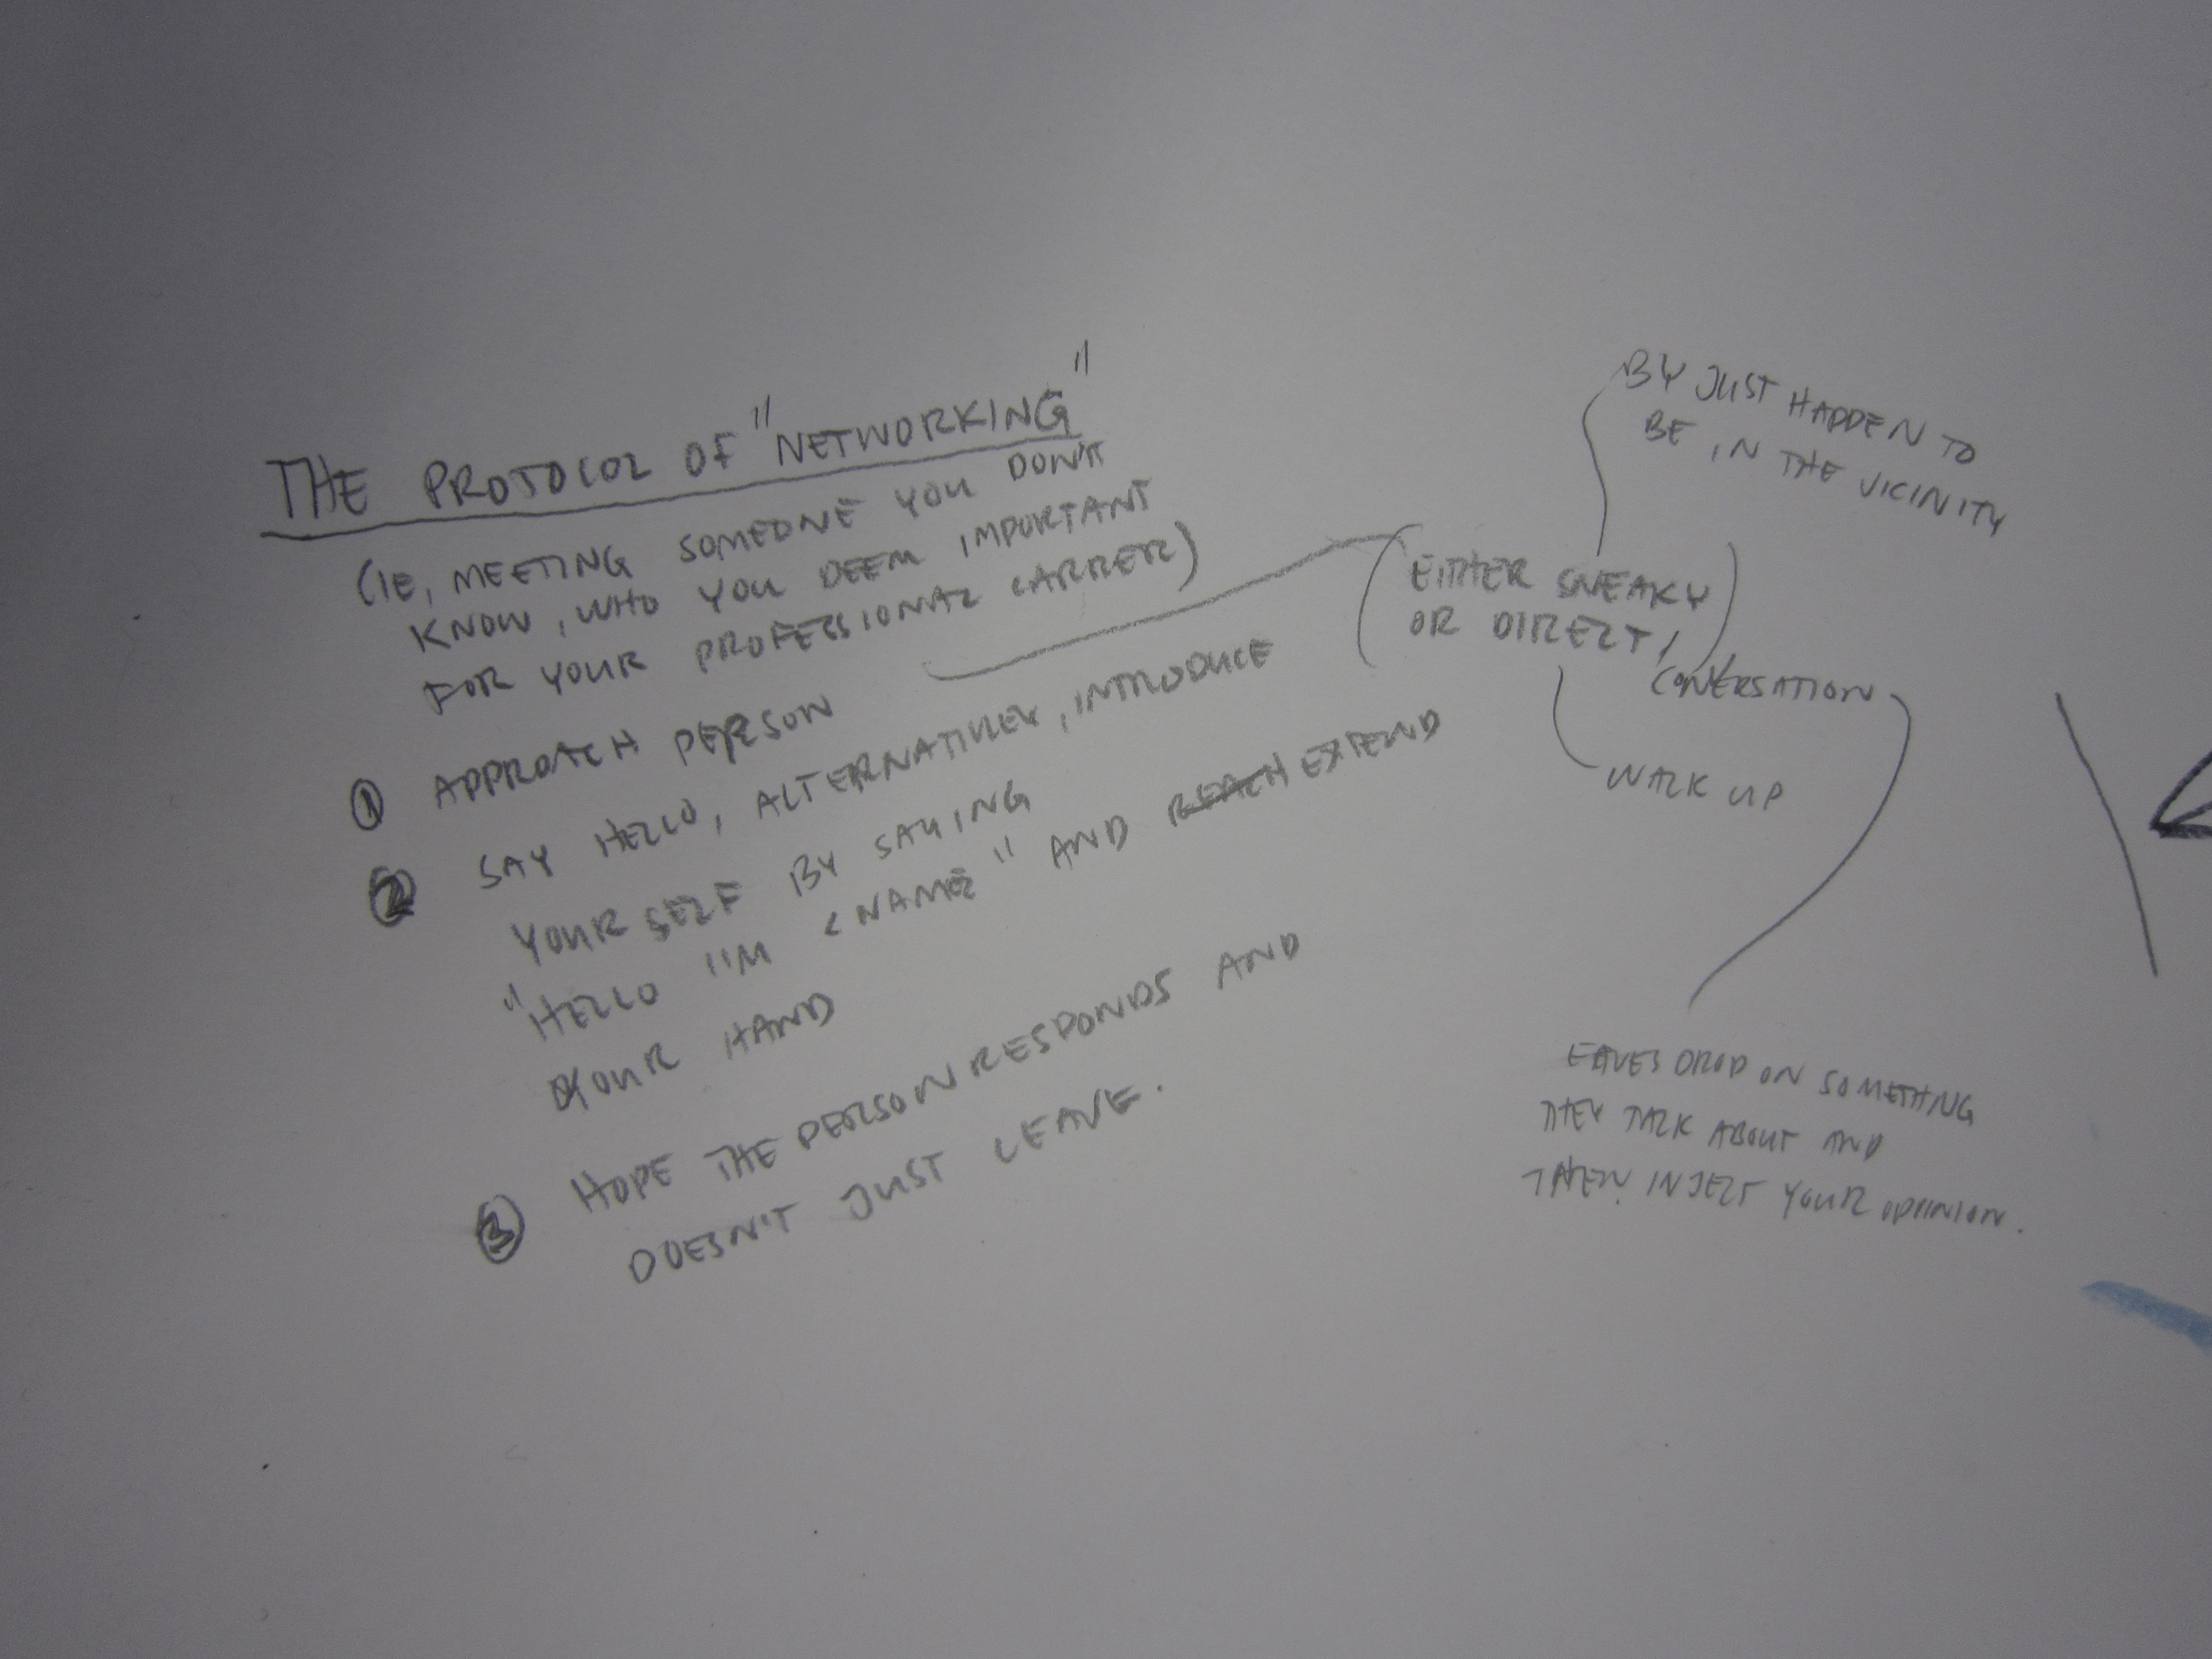 THE PROTOCOL OF "NETWORKING"
(IE, MEETING SOMEONE YOU DON'T
KNOW, WHO YOU DEEM IMPORTANT
FOR YOUR PROFESSIONAL CARRER)
① APPROACH PERSON
(EITHER SNEAKY
OR DIRECT,)
CONVERSATION
BY JUST HAPPEN TO
BE IN THE VICINITY
WALK UP
EAVES DROP ON SOMETHING
THEY TALK ABOUT AND
THEN INJECT YOUR OPINION.
② SAY HELLO, ALTERNATIVELY, INTRODUCE
YOUR SELF BY SAYING
"HELLO I'M <NAME>" AND REACH EXTEND
YOUR HAND
③ HOPE THE PERSON RESPONDS AND
DOESN'T JUST LEAVE.